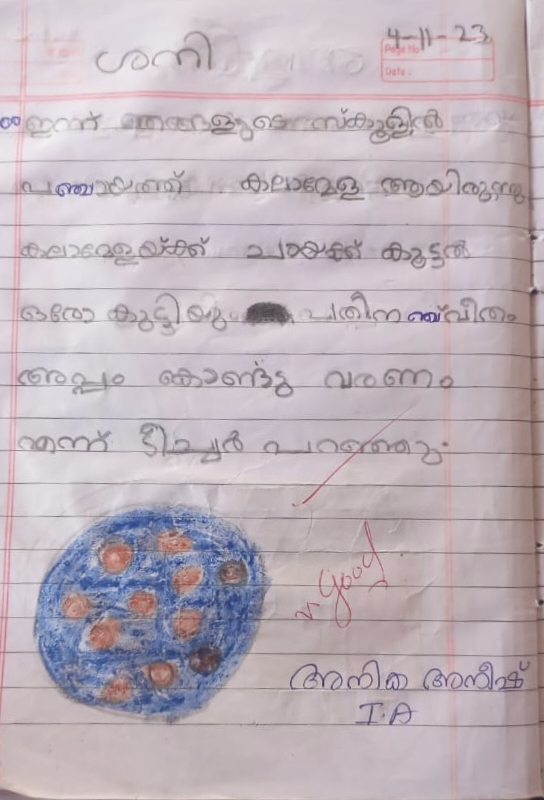 4-11-23
Page No
Date:
ശനി
ഇന്ന് ഞങ്ങളുടെ സ്കൂളിൽ
പഞ്ചായത്ത് കലാമേള ആയിരുന്നു
കലാമേളയ്ക്ക് ചായക്ക് കൂട്ടൽ
ഒരോ കുട്ടിയും പതിനഞ്ച്വീതം
അപ്പം കൊണ്ടു വരണം
എന്ന് ടീച്ചർ പറഞ്ഞു.
v. good
അനിക അനീഷ്
I.A